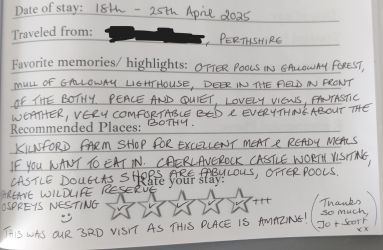 Date of stay: 18th - 25th April 2025
Traveled from: , PERTHSHIRE
Favorite memories/ highlights: OTTER POOLS IN GALLOWAY FOREST,
MULL OF GALLOWAY LIGHTHOUSE, DEER IN THE FIELD IN FRONT
OF THE BOTHY. PEACE AND QUIET, LOVELY VIEWS, FANTASTIC
WEATHER, VERY COMFORTABLE BED & EVERYTHING ABOUT THE
BOTHY.
Recommended Places:
KILNFORD FARM SHOP FOR EXCELLENT MEAT & READY MEALS
IF YOU WANT TO EAT IN. CAERLAVEROCK CASTLE WORTH VISITING,
CASTLE DOUGLAS SHOPS ARE FABULOUS, OTTER POOLS.
WILDLIFE RESERVE
Rate your stay:
OSPREYS NESTING
+++
THIS WAS OUR 3RD VISIT AS THIS PLACE IS AMAZING!
Thanks
so much
Jo + Scott
xx